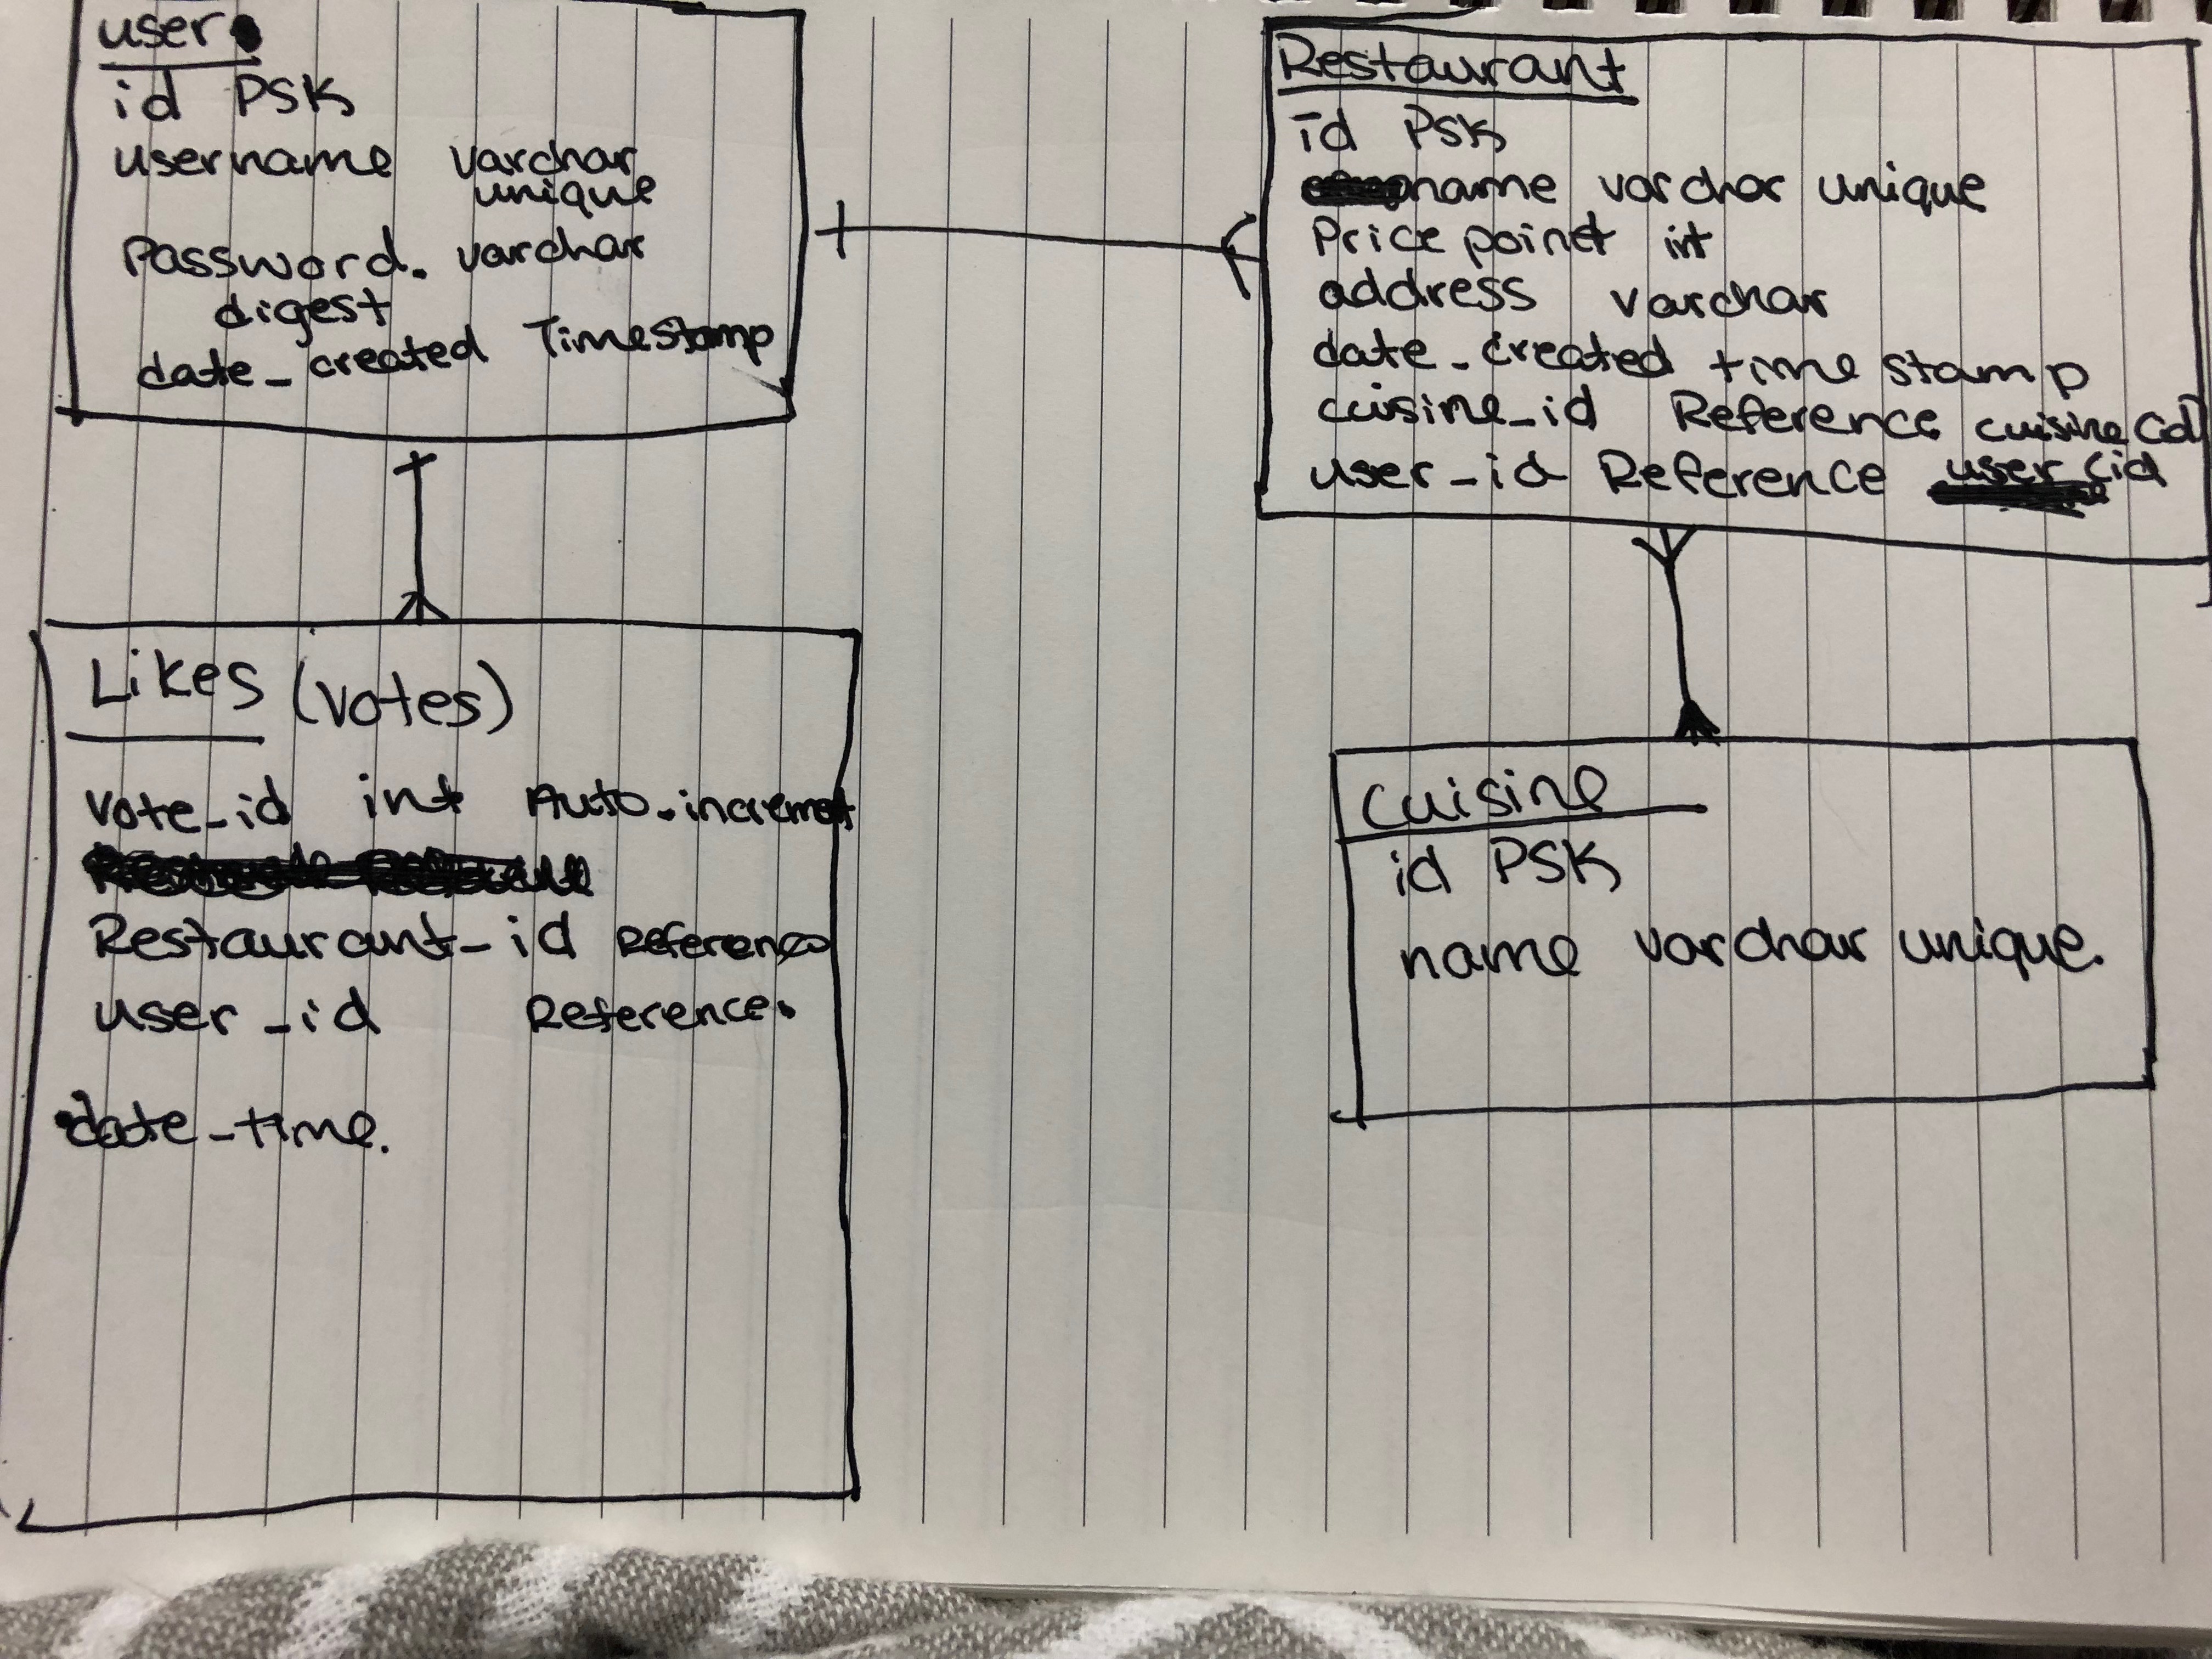 user
id PSK
username varchar
unique
Password. varchar
digest
date_created Timestamp
Restaurant
id PSK
name varchar unique
Price point int
address varchar
date_created timestamp
cuisine_id Reference cuisine(id)
user_id Reference user(id
Likes (votes)
vote_id int Auto.increment
Restaurant_id Reference
user_id Reference.
date_time.
cuisine
id PSK
name varchar unique.